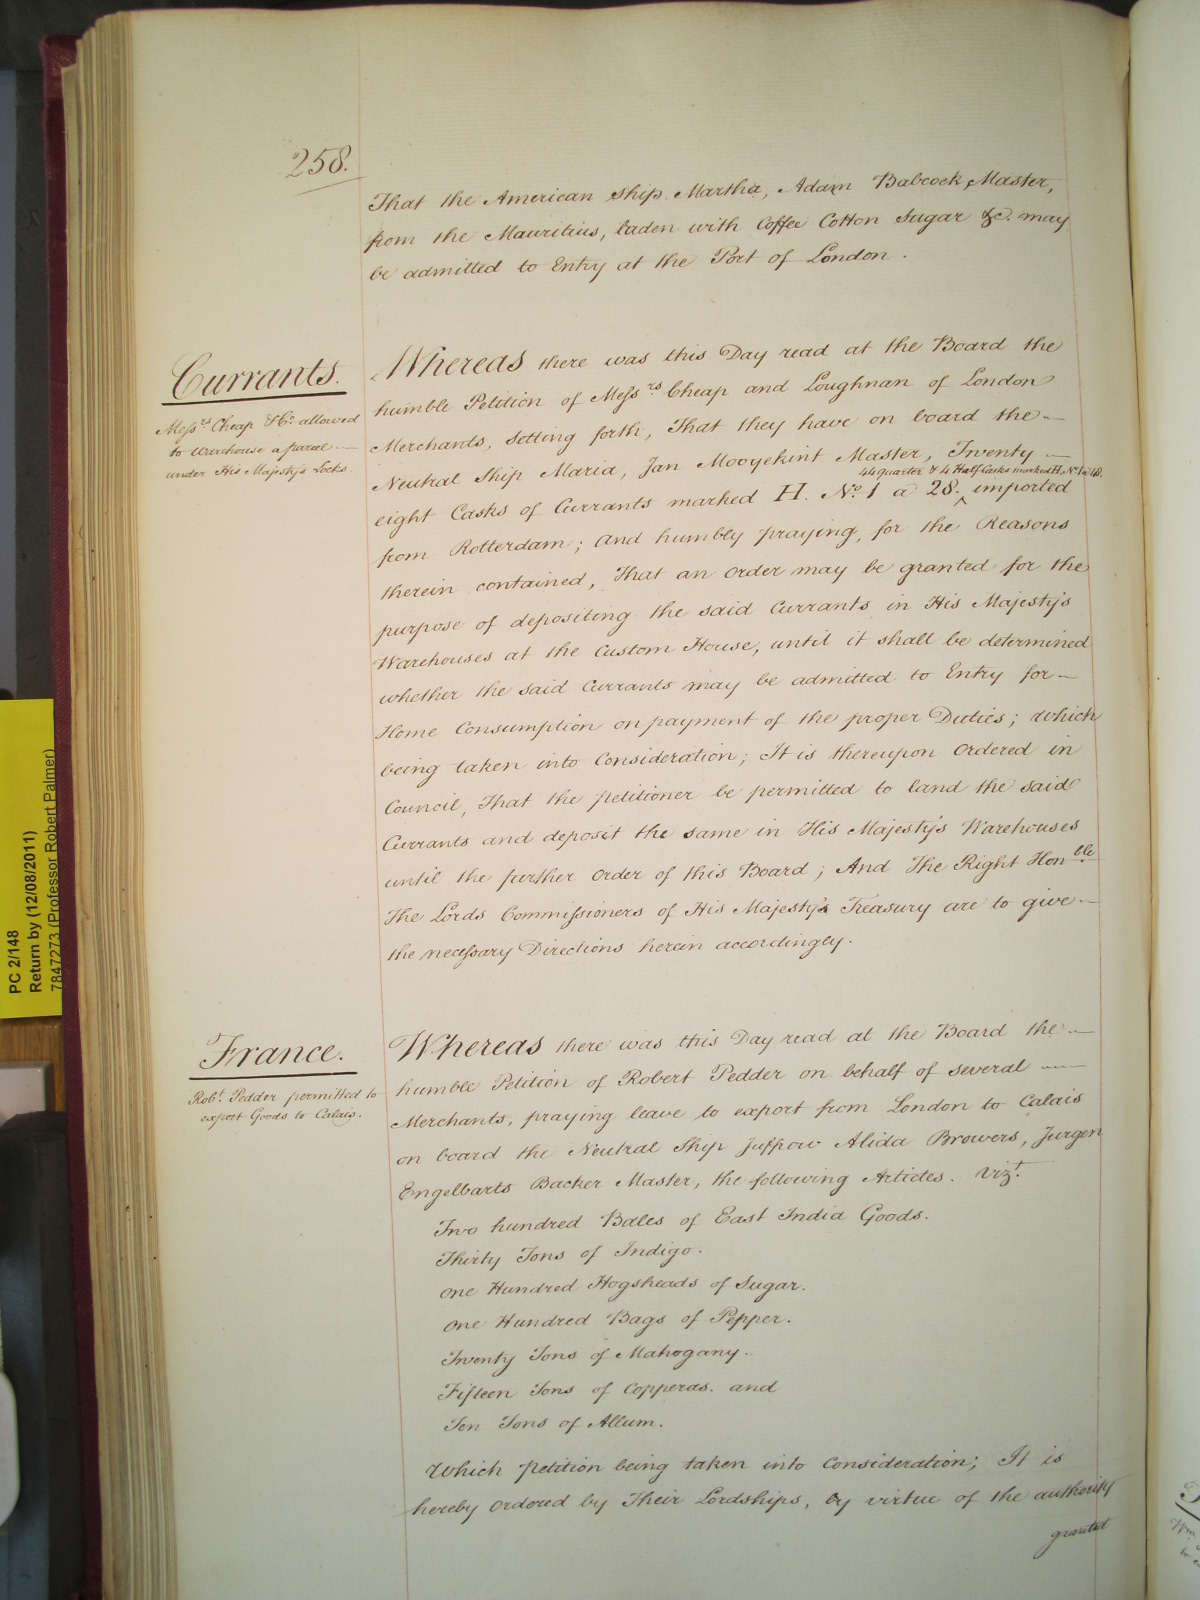 258.
That the American Ship Martha, Adam Babcock Master,
from the Mauritius, laden with Coffee Cotton Sugar &c. may
be admitted to Entry at the Port of London.
Currants.
Messrs Cheap & Co. allowed
to Warehouse a parcel
under His Majesty's Locks.
Whereas there was this Day read at the Board the
humble Petition of Messrs Cheap and Loughnan of London
Merchants, setting forth, That they have on board the
Neutral Ship Maria, Jan Mooyekint Master, Twenty
44 Quarter & 4 Half Casks marked H. No. 1 a 48.
eight Casks of Currants marked H. No. 1 a 28. ^ imported
from Rotterdam; and humbly praying, for the Reasons
therein contained, That an order may be granted for the
purpose of depositing the said Currants in His Majesty's
Warehouses at the Custom House, until it shall be determined
whether the said Currants may be admitted to Entry for
Home Consumption on payment of the proper Duties; which
being taken into Consideration; It is thereupon Ordered in
Council, That the petitioner be permitted to land the said
Currants and deposit the same in His Majesty's Warehouses
until the further order of this Board; And The Right Honble
the Lords Commissioners of His Majesty's Treasury are to give
the necessary Directions herein accordingly.
France.
Robt. Pedder permitted to
export Goods to Calais.
Whereas there was this Day read at the Board the
humble Petition of Robert Pedder on behalf of several
Merchants, praying leave to export from London to Calais
on board the Neutral Ship Juffrow Alida Browers, Jurgen
Engelbarts Backer Master, the following Articles. Vizt.
Two hundred Bales of East India Goods.
Thirty Tons of Indigo.
One Hundred Hogsheads of Sugar.
One Hundred Bags of Pepper.
Twenty Tons of Mahogany.
Fifteen Tons of Copperas. and
Ten Tons of Allum.
Which petition being taken into Consideration; It is
hereby ordered by Their Lordships, by virtue of the authority
granted
PC 2/148
Return by (12/08/2011)
7847273 (Professor Robert Palmer)